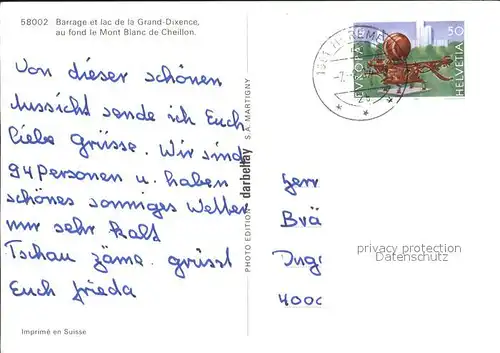 58002 Barrage et lac de la Grand-Dixence,
au fond le Mont Blanc de Cheillon.
Von dieser schönen
Aussicht sende ich Euch
liebe Grüsse. Wir sind
94 Personen u. haben
schönes sonniges Wetter
nur sehr kalt
Tschau zäme. grüsst
Euch Frieda
Imprimé en Suisse
PHOTO EDITION darbellay S.A. MARTIGNY
EUROPA
50
HELVETIA
Herr
Brä
Inge
4000
privacy protection
Datenschutz